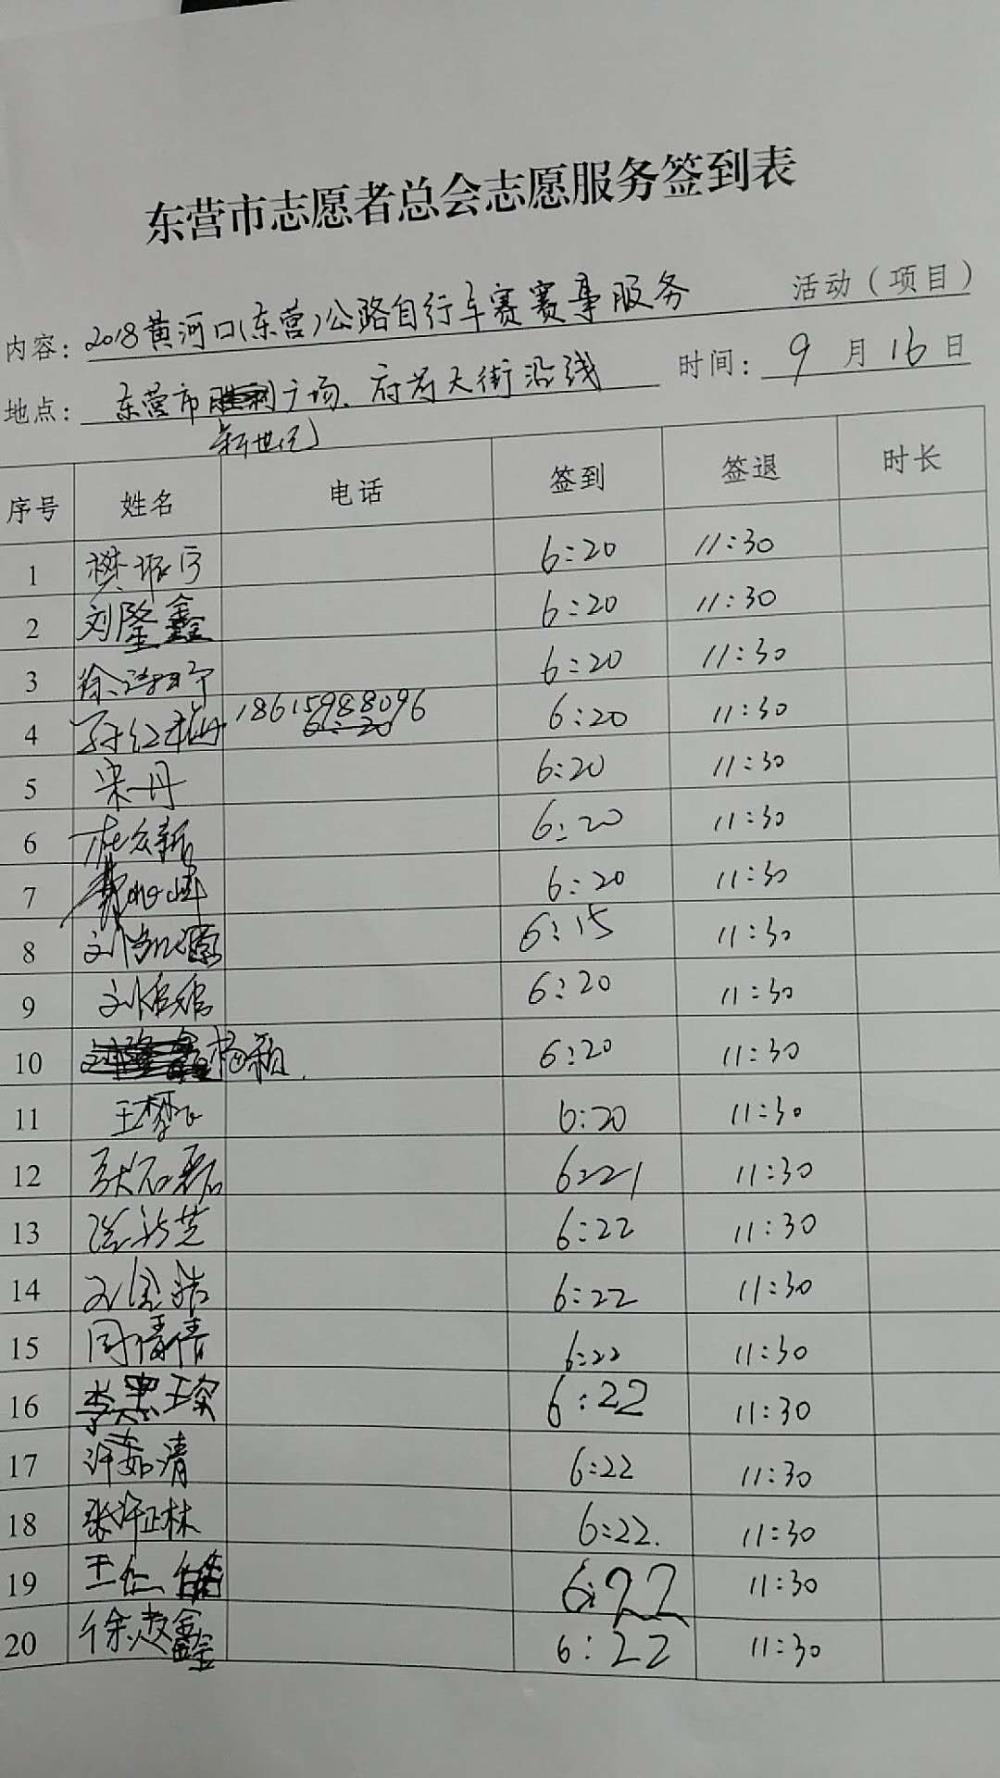 东营市志愿者总会志愿服务签到表
内容: 2018黄河口(东营)公路自行车赛赛事服务 活动(项目)
地点: 东营市广场、府前大街沿线 时间: 9月16日
新世纪
序号 姓名 电话 签到 签退 时长
1 樊 6:20 11:30
2 刘隆鑫 6:20 11:30
3 徐 6:20 11:30
4 孙红梅 18615988096 6:20 11:30
5 宋丹 6:20 11:30
6 杜新 6:20 11:30
7 6:20 11:30
8 刘凯源 6:15 11:30
9 刘 6:20 11:30
10 杨颖 6:20 11:30
11 王梦飞 6:20 11:30
12 张石磊 6:21 11:30
13 芝 6:22 11:30
14 刘浩 6:22 11:30
15 周倩倩 6:22 11:30
16 李 6:22 11:30
17 许茹清 6:22 11:30
18 张许正林 6:22. 11:30
19 王仁 6:22 11:30
20 徐志鑫 6:22 11:30